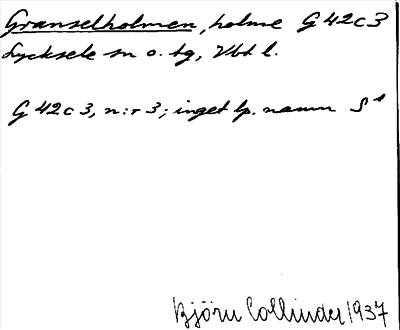 Granselholmen, holme G 42c3
Lycksele sn o. tg, Vbt l.
G 42c3, n:r 3; inget lp. namn S¹
Björn Collinder 1937